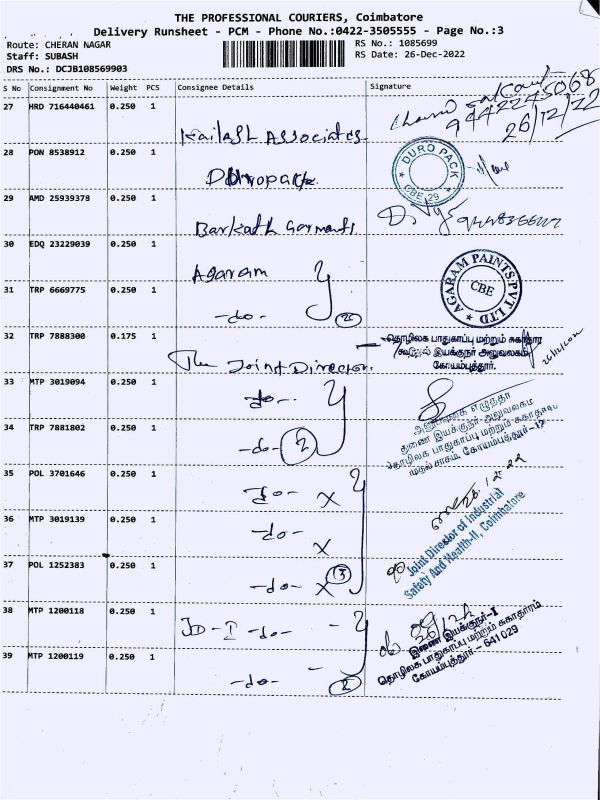 THE PROFESSIONAL COURIERS, Coimbatore
Delivery Runsheet - PCM - Phone No.:0422-3505555 - Page No.:3
Route: CHERAN NAGAR
Staff: SUBASH
DRS No.: DCJB108569903
RS No.: 1085699
RS Date: 26-Dec-2022
S No Consignment No Weight PCS Consignee Details Signature
27 HRD 716440461 0.250 1
Kailash Associates
9442245068
26/12/22
28 PON 8538912 0.250 1
Duropack
DURO PACK
CBE 29
29 AMD 25939378 0.250 1
Barkath Garments
30 EDQ 23229039 0.250 1
Agaram
AGARAM PAINTS PVT LTD
CBE
31 TRP 6669775 0.250 1
-do- 2
32 TRP 7888300 0.175 1
The Joint Director.
தொழிலக பாதுகாப்பு மற்றும் சுகாதார
இயக்குநர் அலுவலகம்
கோயம்புத்தூர்.
33 MTP 3019094 0.250 1
-do-
34 TRP 7881802 0.250 1
-do- 2
துணை இயக்குநர் அலுவலகம்
தொழிலக பாதுகாப்பு மற்றும் சுகாதாரம்
கோயம்புத்தூர்-17
35 POL 3701646 0.250 1
-do- x
36 MTP 3019139 0.250 1
-do- x
37 POL 1252383 0.250 1
-do- x 3
26.12.22
Joint Director of Industrial
Safety And Health-II, Coimbatore
38 MTP 1200118 0.250 1
JD-I -do-
39 MTP 1200119 0.250 1
-do- 2
இணை இயக்குநர்-I
தொழிலக பாதுகாப்பு மற்றும் சுகாதாரம்
கோயம்புத்தூர் - 641 029